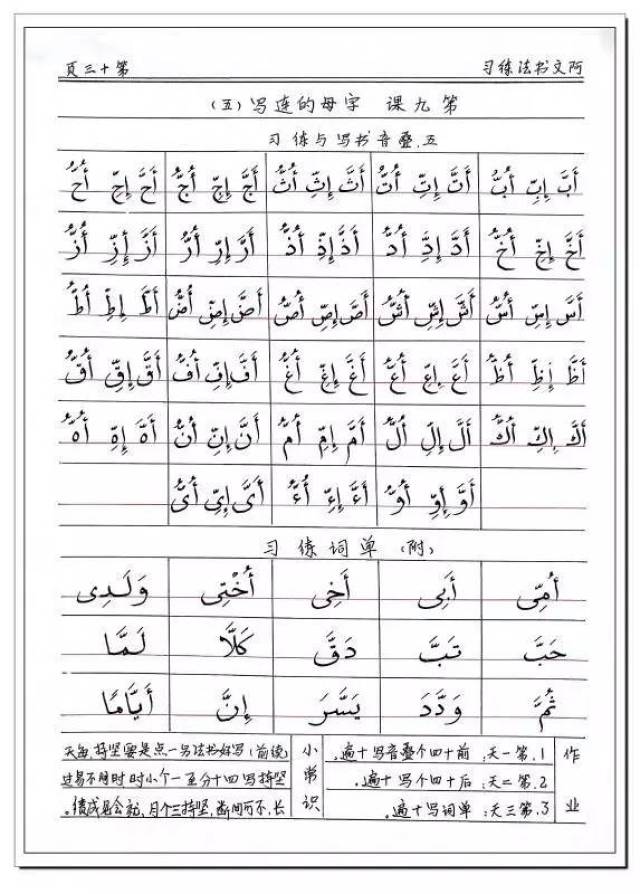 阿文书法练习 第十三页
第九课 字母的连写(五)
五.叠音书写与练习
أَبَّ إِبِّ أُبُّ أَتَّ إِتِّ أُتُّ أَثَّ إِثِّ أُثُّ أَجَّ إِجِّ أُجُّ أَحَّ إِحِّ أُحُّ
أَخَّ إِخِّ أُخُّ أَدَّ إِدِّ أُدُّ أَذَّ إِذِّ أُذُّ أَرَّ إِرِّ أُرُّ أَزَّ إِزِّ أُزُّ
أَسَّ إِسِّ أُسُّ أَشَّ إِشِّ أُشُّ أَصَّ إِصِّ أُصُّ أَضَّ إِضِّ أُضُّ أَطَّ إِطِّ أُطُّ
أَظَّ إِظِّ أُظُّ أَعَّ إِعِّ أُعُّ أَغَّ إِغِّ أُغُّ أَفَّ إِفِّ أُفُّ أَقَّ إِقِّ أُقُّ
أَكَّ إِكِّ أُكُّ أَلَّ إِلِّ أُلُّ أَمَّ إِمِّ أُمُّ أَنَّ إِنِّ أُنُّ أَهَّ إِهِّ أُهُّ
أَوَّ إِوِّ أُوُّ أَءَّ إِءِّ أُءُّ أَىَّ إِىِّ أُىُّ
(附)单词练习
أُمِّى أَبِى أَخِى أُخْتِى وَلَدِى
حَبَّ تَبَّ دَقَّ كَلَّا لَمَّا
ثُمَّ وَدَّدَ يَسَّرَ إِنَّ أَيَّامًا
作业
1.第一天:前四十个叠音写十遍。
2.第二天:后四十个写十遍。
3.第三天:单词写十遍。
小常识
(续前)写好书法另一点是要坚持,每天
坚持写四十分至一个小时时间不易过
长,不可间断,坚持三个月,就会见成绩。